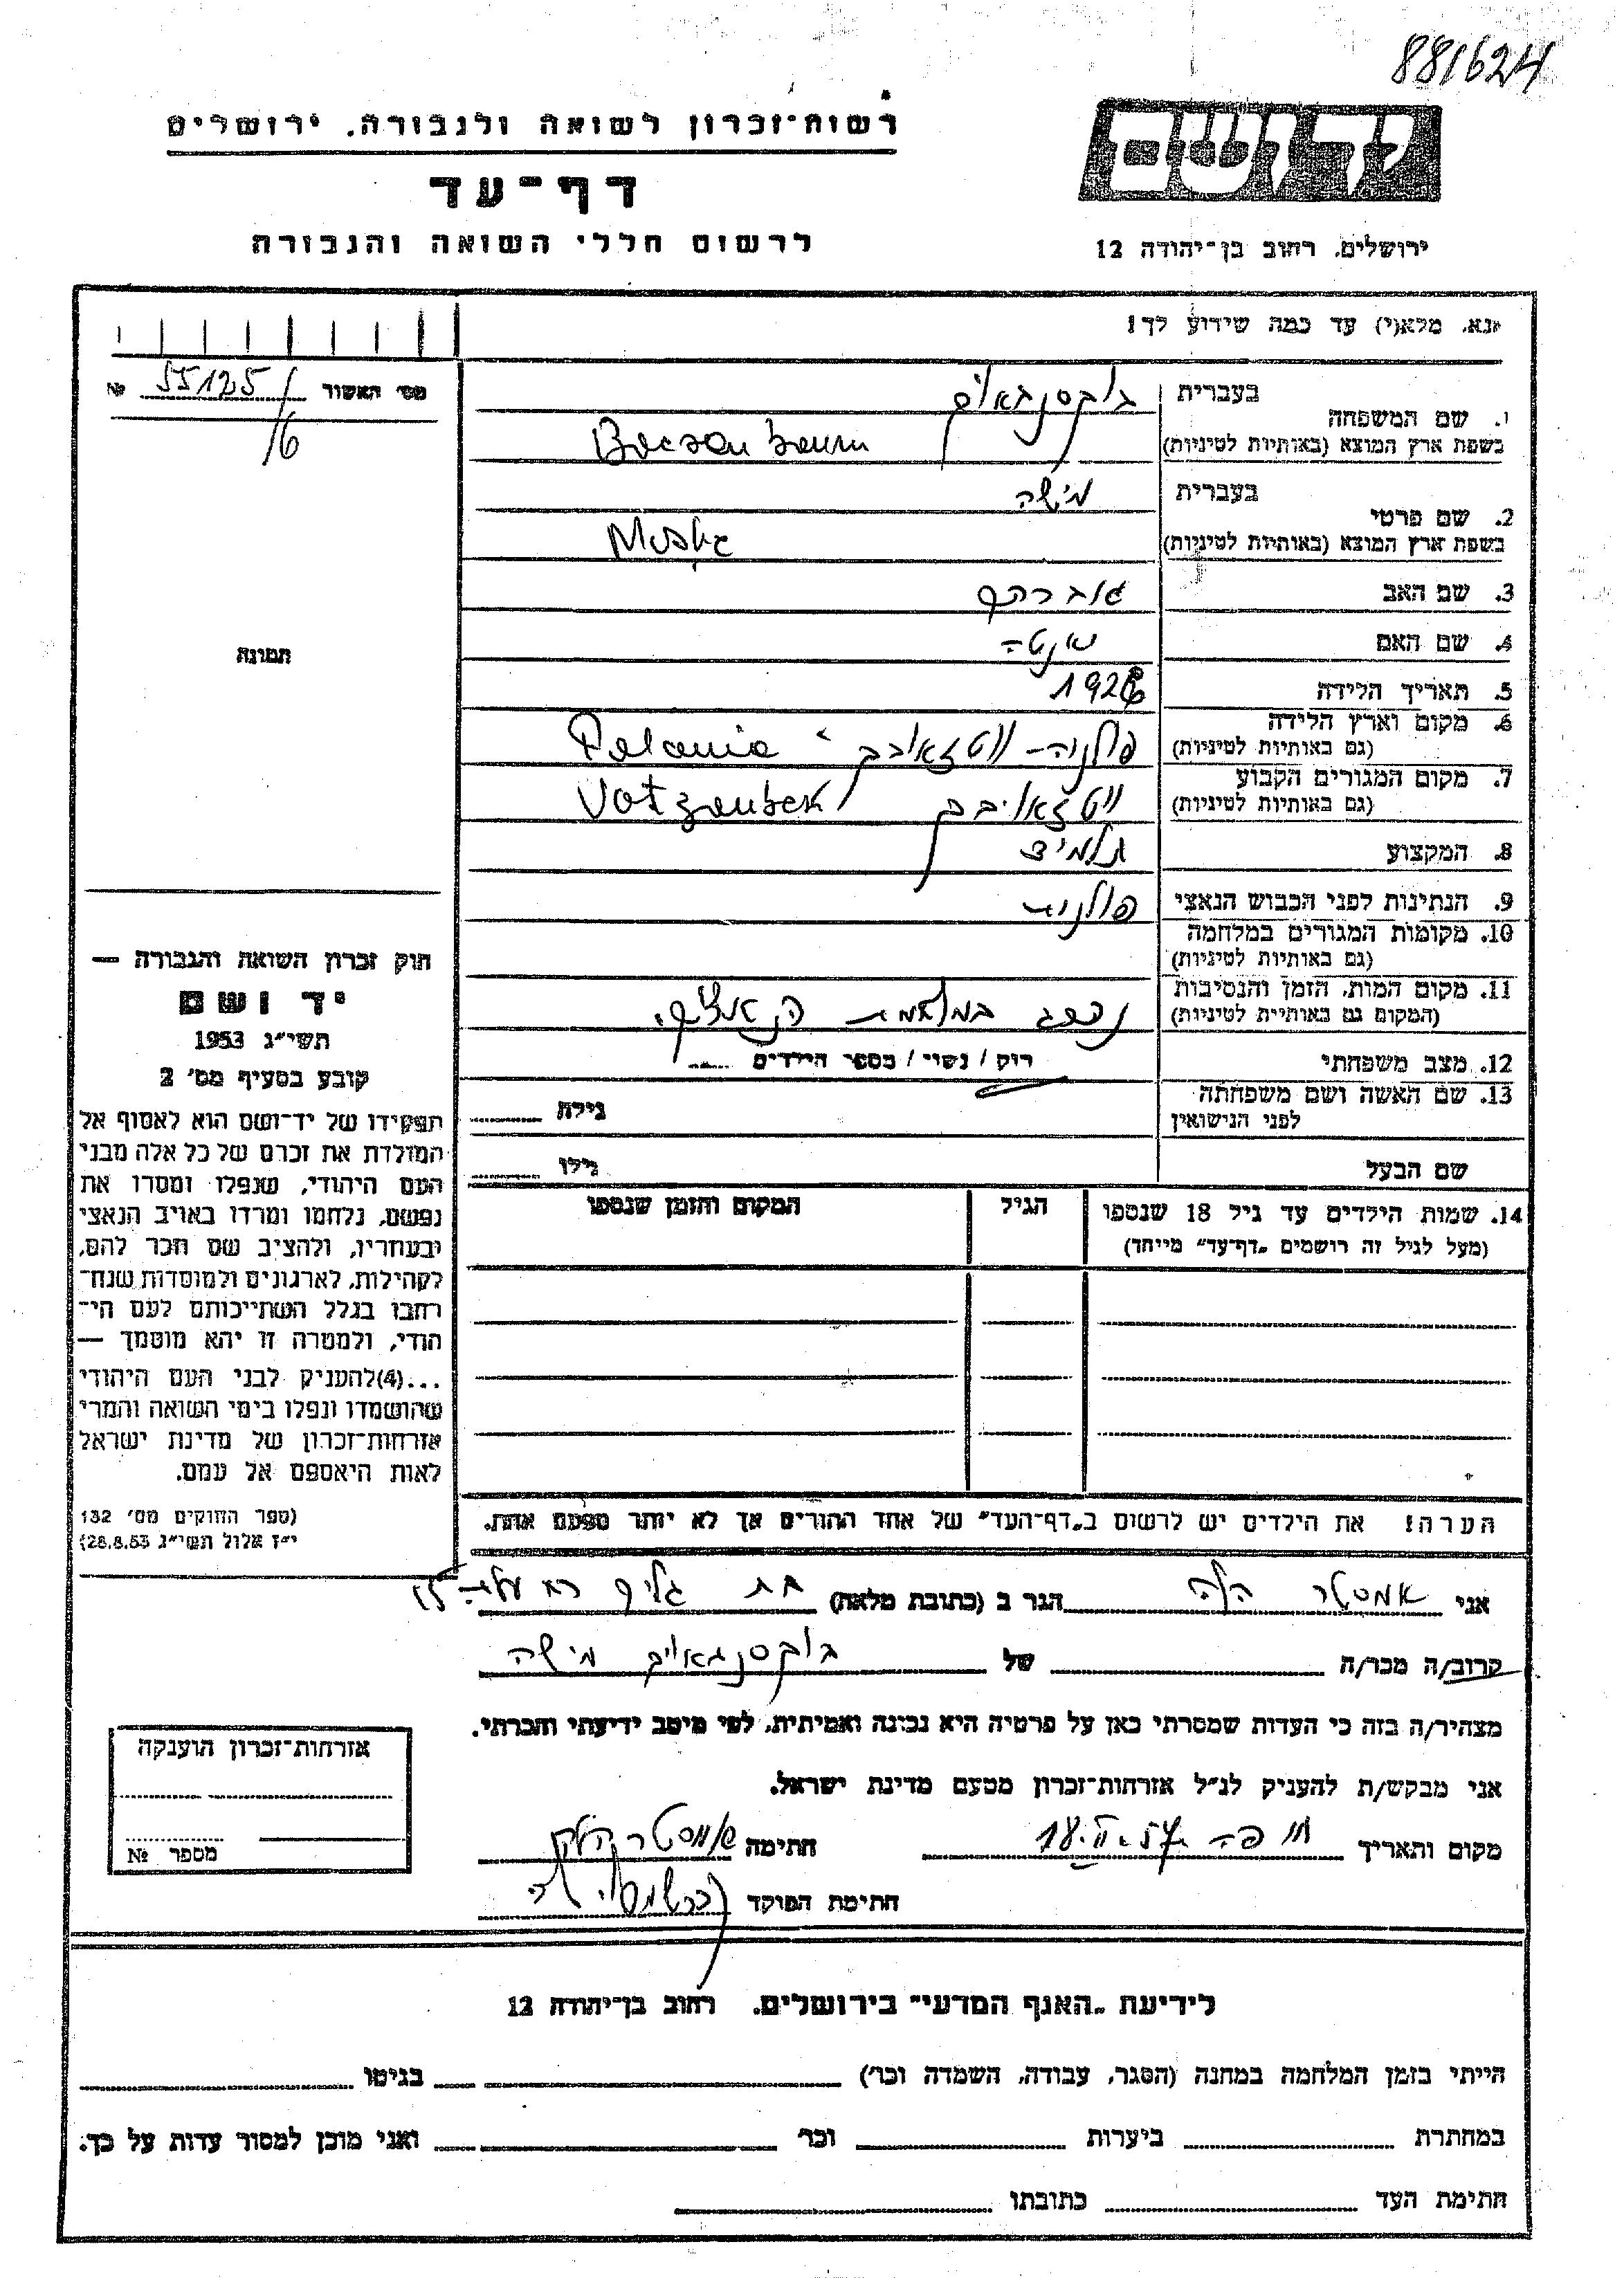 881624
רשות-זכרון לשואה ולגבורה. ירושלים
דף-עד
לרשום חללי השואה והגבורה
ידושם
ירושלים. רחוב בן-יהודה 12
נא. מלא(י) עד כמה שידוע לך!
מס' האשור № 55125/
16
1. שם המשפחה
בעברית בוקסנבאום
בשפת ארץ המוצא (באותיות לטיניות) Bocsenbaum
2. שם פרטי
בעברית מישה
בשפת ארץ המוצא (באותיות לטיניות)
3. שם האב
4. שם האם
5. תאריך הלידה
6. מקום וארץ הלידה
(גם באותיות לטיניות) פולניה - ווטזאובק Polania
7. מקום המגורים הקבוע
(גם באותיות לטיניות) Votzoubek
8. המקצוע תלמיד
9. הנתינות לפני הכבוש הנאצי פולנית
10. מקומות המגורים במלחמה
(גם באותיות לטיניות)
11. מקום המות. הזמן והנסיבות
(המקום גם באותיות לטיניות) נספה במלחמת
12. מצב משפחתי רוק / נשוי / מספר הילדים
13. שם האשה ושם משפחתה
לפני הנישואין
גילה
שם הבעל גילו
14. שמות הילדים עד גיל 18 שנספו הגיל המקום והזמן שנספו
(מעל לגיל זה רושמים „דף-עד" מייחד)
הערה! את הילדים יש לרשום ב„דף-העד" של אחד ההורים אך לא יותר מפעם אחת.
תמונה
חוק זכרון השואה והגבורה —
יד ושם
תשי"ג 1953
קובע בסעיף מס' 2
תפקידו של יד-ושם הוא לאסוף אל
המולדת את זכרם של כל אלה מבני
העם היהודי, שנפלו ומסרו את
נפשם, נלחמו ומרדו באויב הנאצי
ובעוזריו, ולהציב שם וזכר להם,
לקהילות, לארגונים ולמוסדות שנח-
רבו בגלל השתייכותם לעם הי-
הודי, ולמטרה זו יהא מוסמך —
...(4)להעניק לבני העם היהודי
שהושמדו ונפלו בימי השואה והמרי
אזרחות-זכרון של מדינת ישראל
לאות היאספם אל עמם.
(ספר החוקים מס' 132
י"ז אלול תשי"ג 28.8.53)
אני אמסטר הלה הגר ב (כתובת מלאה) בת גלים
קרוב/ה מכר/ה של בוקסנבאום מישה
מצהיר/ה בזה כי העדות שמסרתי כאן על פרטיה היא נכונה ואמיתית, לפי מיטב ידיעתי והכרתי.
אני מבקש/ת להעניק לנ"ל אזרחות-זכרון מטעם מדינת ישראל.
מקום ותאריך חיפה 18.II.57 חתימה
חתימת הפוקד
אזרחות-זכרון הוענקה
מספר №
לידיעת „האגף המדעי" בירושלים. רחוב בן-יהודה 12
הייתי בזמן המלחמה במחנה (הסגר, עבודה, השמדה וכו') בגיטו
במחתרת ביערות וכו' ואני מוכן למסור עדות על כך.
חתימת העד כתובתו